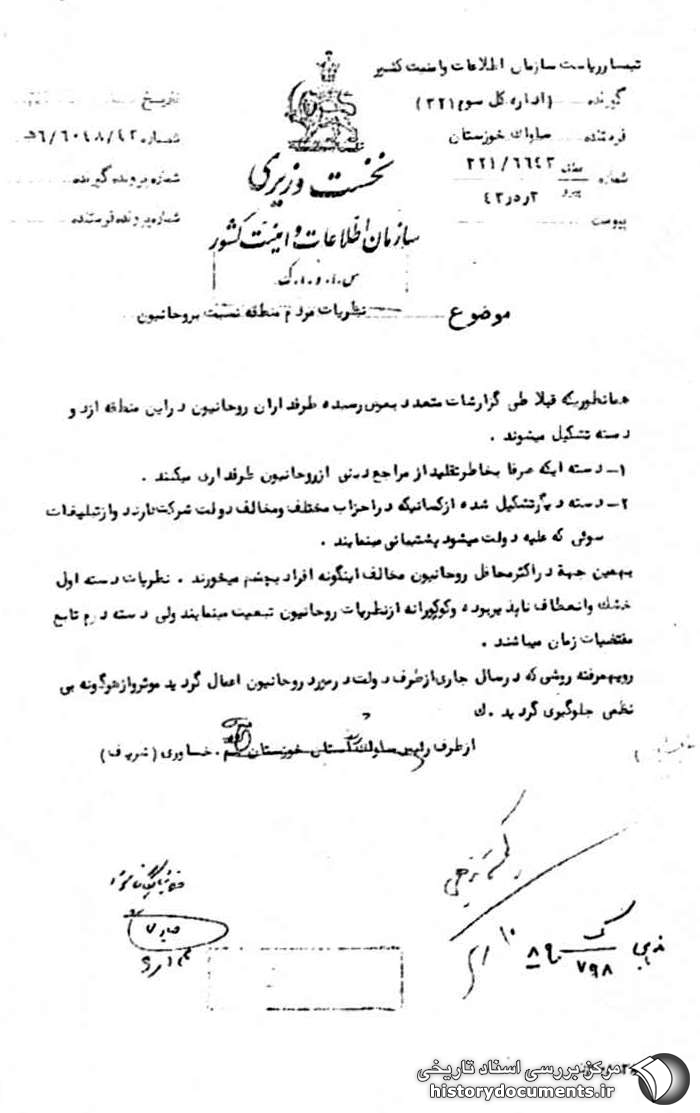 تیمسار ریاست سازمان اطلاعات وامنیت کشور
گیرنده (اداره کل سوم ۳۲۱)
فرستنده ساواك خوزستان
شماره ۲۲۱/۶۶۴۳
عطف
پیرو
پیوست
تاریخ
شماره ۶/۶۰۴۸/۴۲
شماره پرونده گیرنده
شماره پرونده فرستنده
نخست وزیری
سازمان اطلاعات و امنیت کشور
س.ا.و.ا.ک
موضوع نظریات مردم منطقه نسبت بروحانیون
همانطوریکه قبلا طی گزارشات متعدد بعرض رسیده طرفداران روحانیون دراین منطقه ازدو
دسته تشکیل میشوند .
۱- دسته ایکه صرفا بخاطرتقلیداز مراجع دینی ازروحانیون طرفداری میکنند .
۲- دسته دیگرتشکیل شده ازکسانیکه دراحزاب مختلف ومخالف دولت شرکت دارند وازتبلیغات
سوئی که علیه دولت میشود پشتیبانی مینمایند .
بهمین جهة دراکثرمحافل روحانیون مخالف اینگونه افراد بچشم میخورند . نظریات دسته اول
خشك وانعطاف ناپذیربوده وکورکورانه ازنظریات روحانیون تبعیت مینمایند ولی دسته دوم تابع
مقتضیات زمان میباشند .
رویهمرفته روشی که درسال جاری ازطرف دولت درمورد روحانیون اعمال گردید موثروازهرگونه بی
نظمی جلوگیری گردید . ك
ازطرف رئیس ساواك استان خوزستان . خساوری (شریف)
بایگانی
ك
۷۹۸
مرکز بررسی اسناد تاریخی
historydocuments.ir